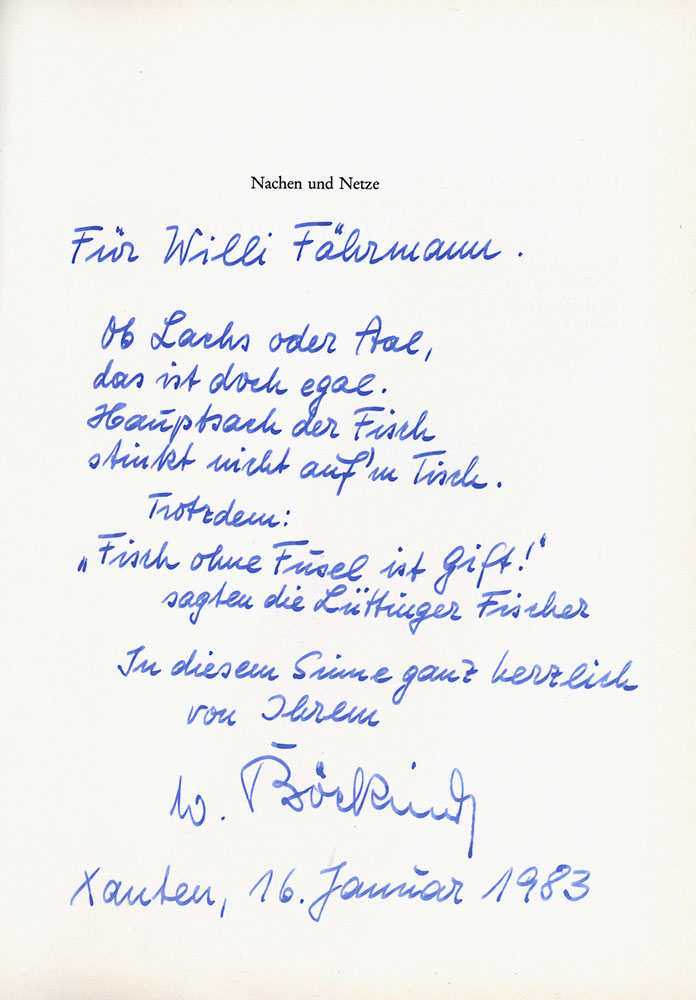 Nachen und Netze
Für Willi Fährmann.
Ob Lachs oder Aal,
das ist doch egal.
Hauptsach der Fisch
stinkt nicht auf'm Tisch.
Trotzdem:
„Fisch ohne Fusel ist Gift!“
sagten die Lüttinger Fischer
In diesem Sinne ganz herzlich
von Ihrem
W. Böcking
Xanten, 16. Januar 1983